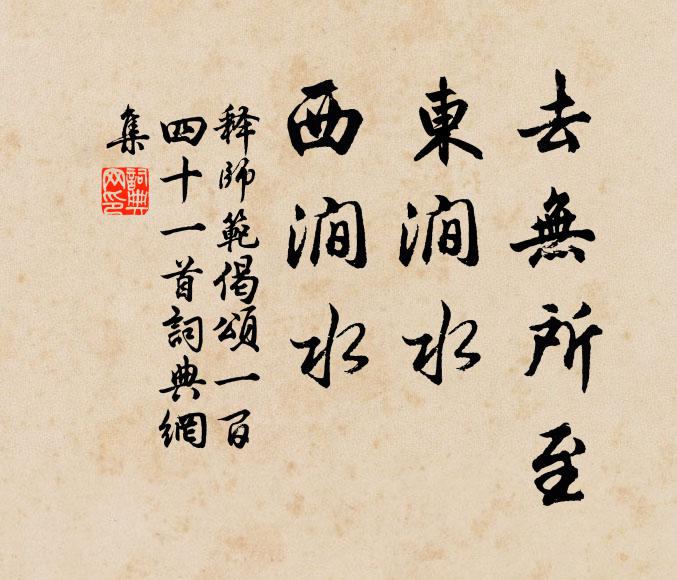 去無所至
東澗水
西澗水
释師範偈頌一百
四十一首詞典網
集
詞典網印